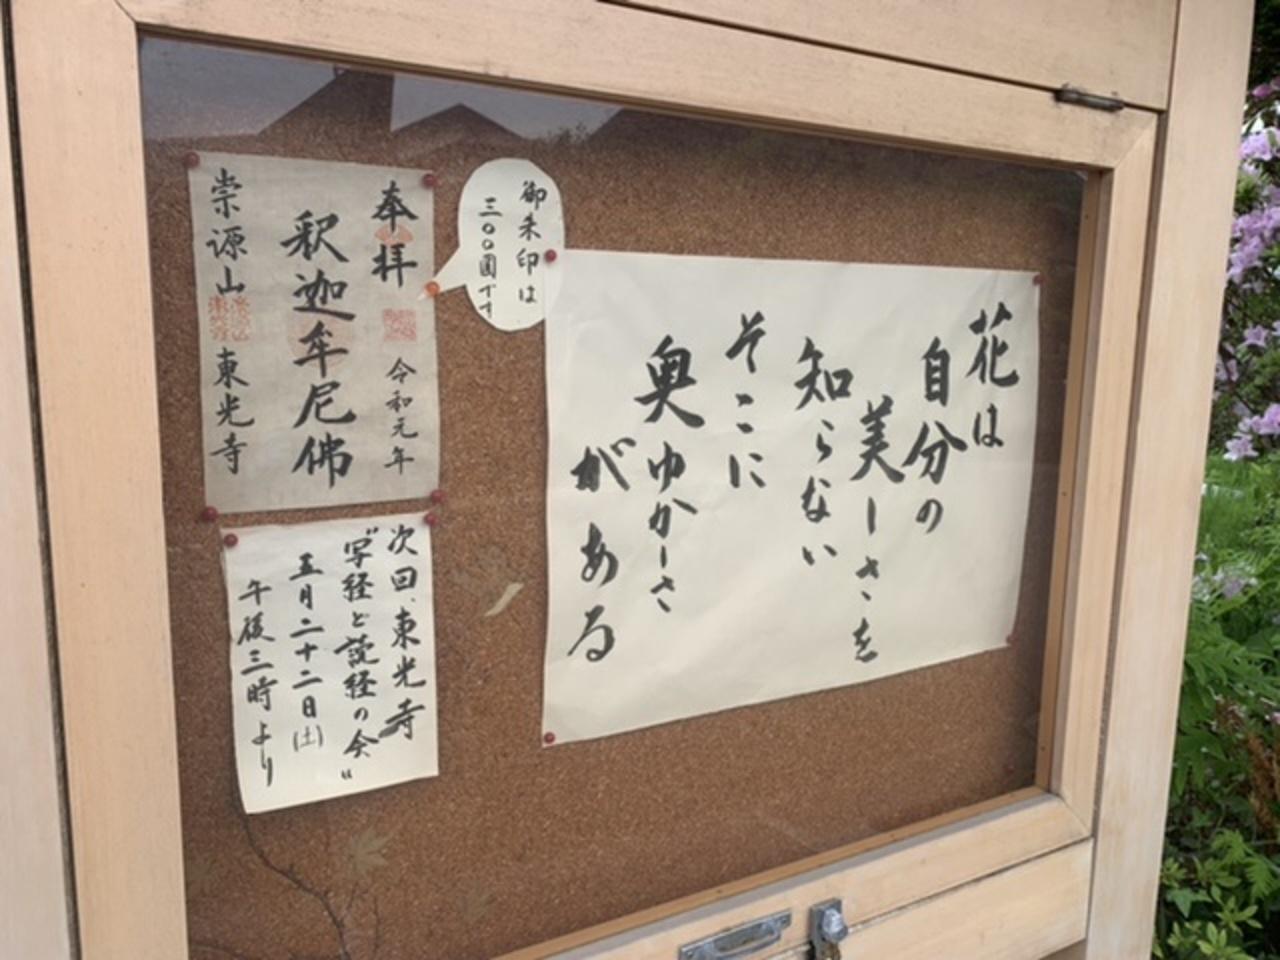 花は
自分の
美しさを
知らない
そこに
奥ゆかしさ
がある
御朱印は
三〇〇圓です
奉拝 令和元年
釈迦牟尼佛
崇源山 東光寺
次回、東光寺
"写経と読経の会"
五月二十二日(土)
午後三時より